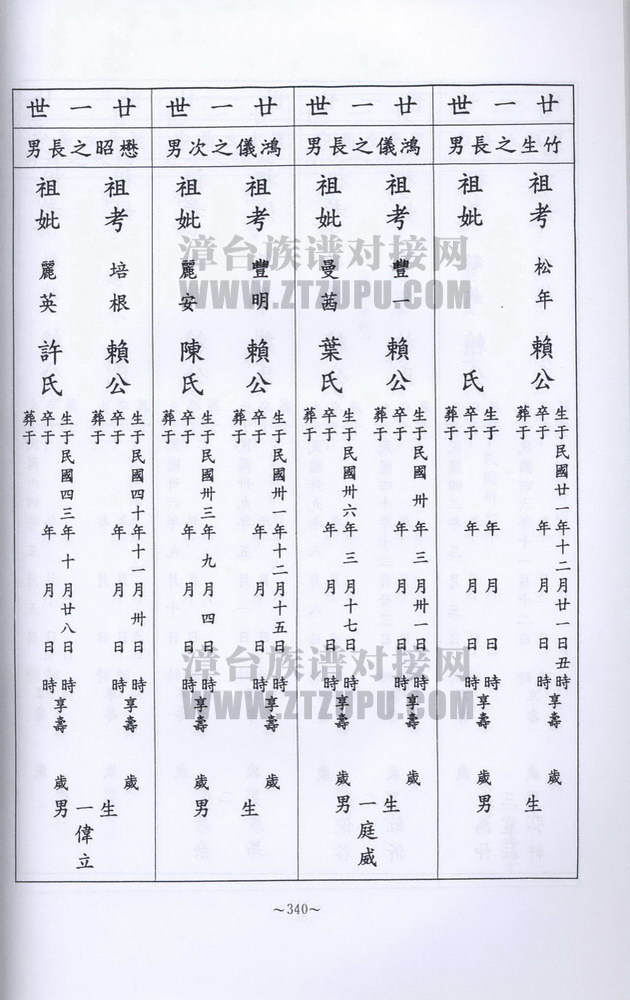 廿一世
竹生之長男
祖考 松年 賴公
生于民國廿一年十二月廿一日丑時
卒于 年 月 日 時享壽 歲
葬于
祖妣 氏
生于 年 月 日 時
卒于 年 月 日 時享壽 歲
葬于
生 男
廿一世
鴻儀之長男
祖考 豐一 賴公
生于民國卅年三月卅一日 時
卒于 年 月 日 時享壽 歲
葬于
祖妣 曼茜 葉氏
生于民國卅六年三月十七日 時
卒于 年 月 日 時享壽 歲
葬于
生一男
庭威
廿一世
鴻儀之次男
祖考 豐明 賴公
生于民國卅一年十二月十五日 時
卒于 年 月 日 時享壽 歲
葬于
祖妣 麗安 陳氏
生于民國卅三年九月四日 時
卒于 年 月 日 時享壽 歲
葬于
生 男
廿一世
懋昭之長男
祖考 培根 賴公
生于民國四十年十一月卅日 時
卒于 年 月 日 時享壽 歲
葬于
祖妣 麗英 許氏
生于民國四三年十月廿八日 時
卒于 年 月 日 時享壽 歲
葬于
生一男
偉立
漳台族谱对接网
WWW.ZTZUPU.COM
漳台族谱对接网
WWW.ZTZUPU.COM
～340～